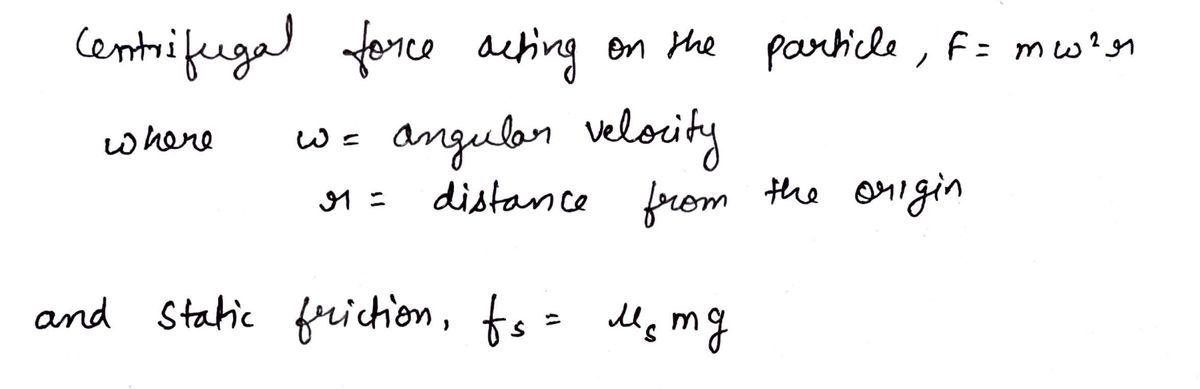 Centrifugal force acting on the particle, F = mω²r
where ω = angular velocity
r = distance from the origin
and static friction, fs = μs mg